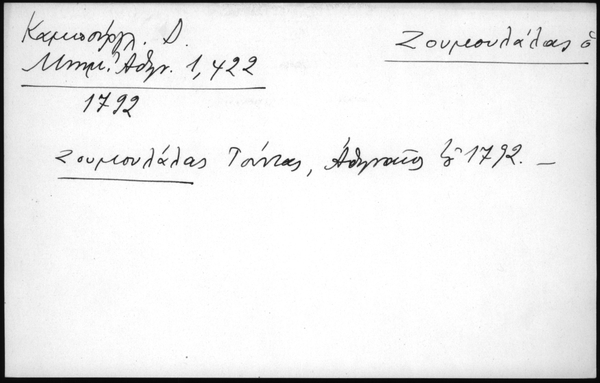 Καμπούργλ. Δ.
Μνημ. Ἀθην. 1,422
1792
Ζουμουλάλας ὁ
Ζουμουλάλας Τούντας, Ἀθηναῖος 1792. —